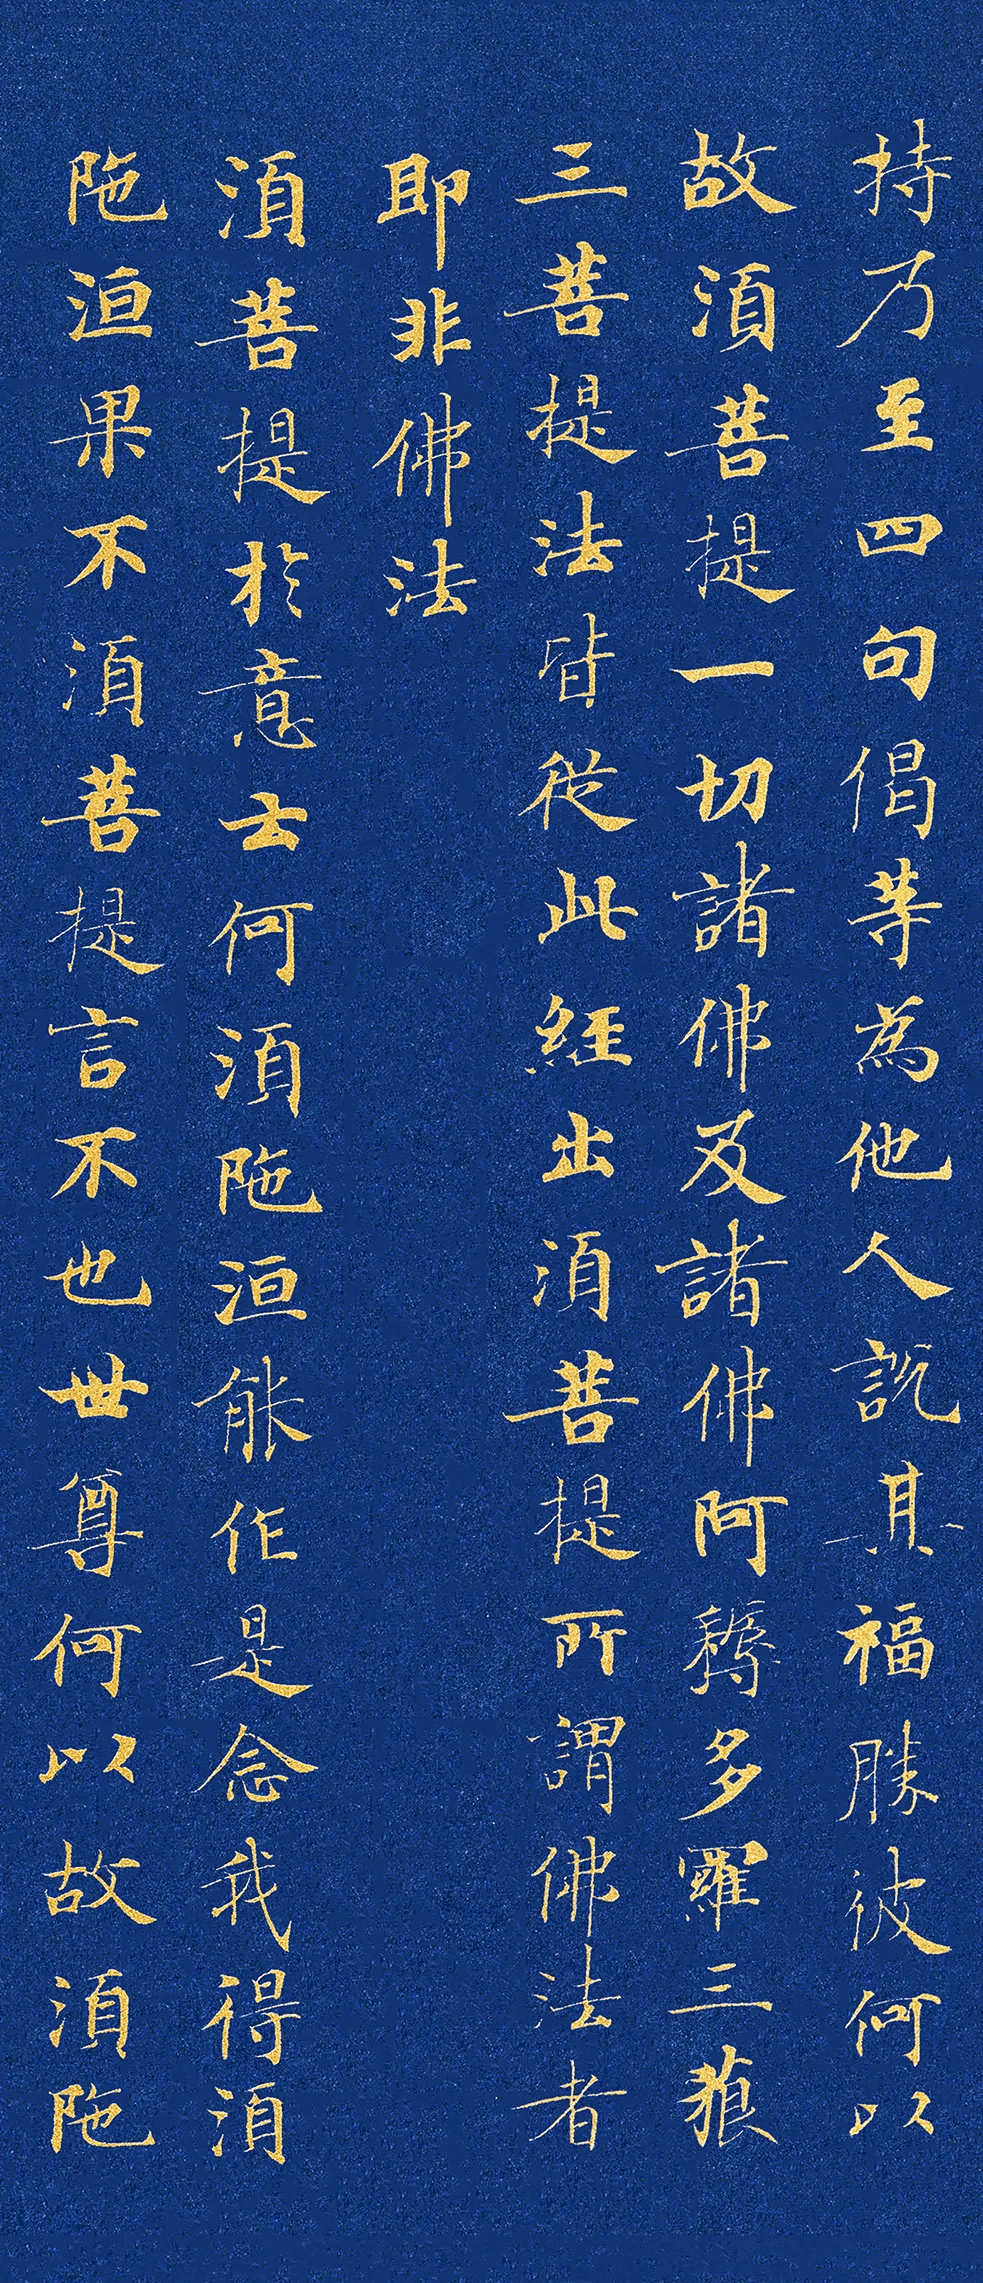 持乃至四句偈等為他人說其福勝彼何以
故湏菩提一切諸佛及諸佛阿耨多羅三藐
三菩提法皆從此經出湏菩提所謂佛法者
即非佛法
湏菩提於意云何湏陁洹能作是念我得湏
陁洹果不湏菩提言不也世尊何以故湏陁